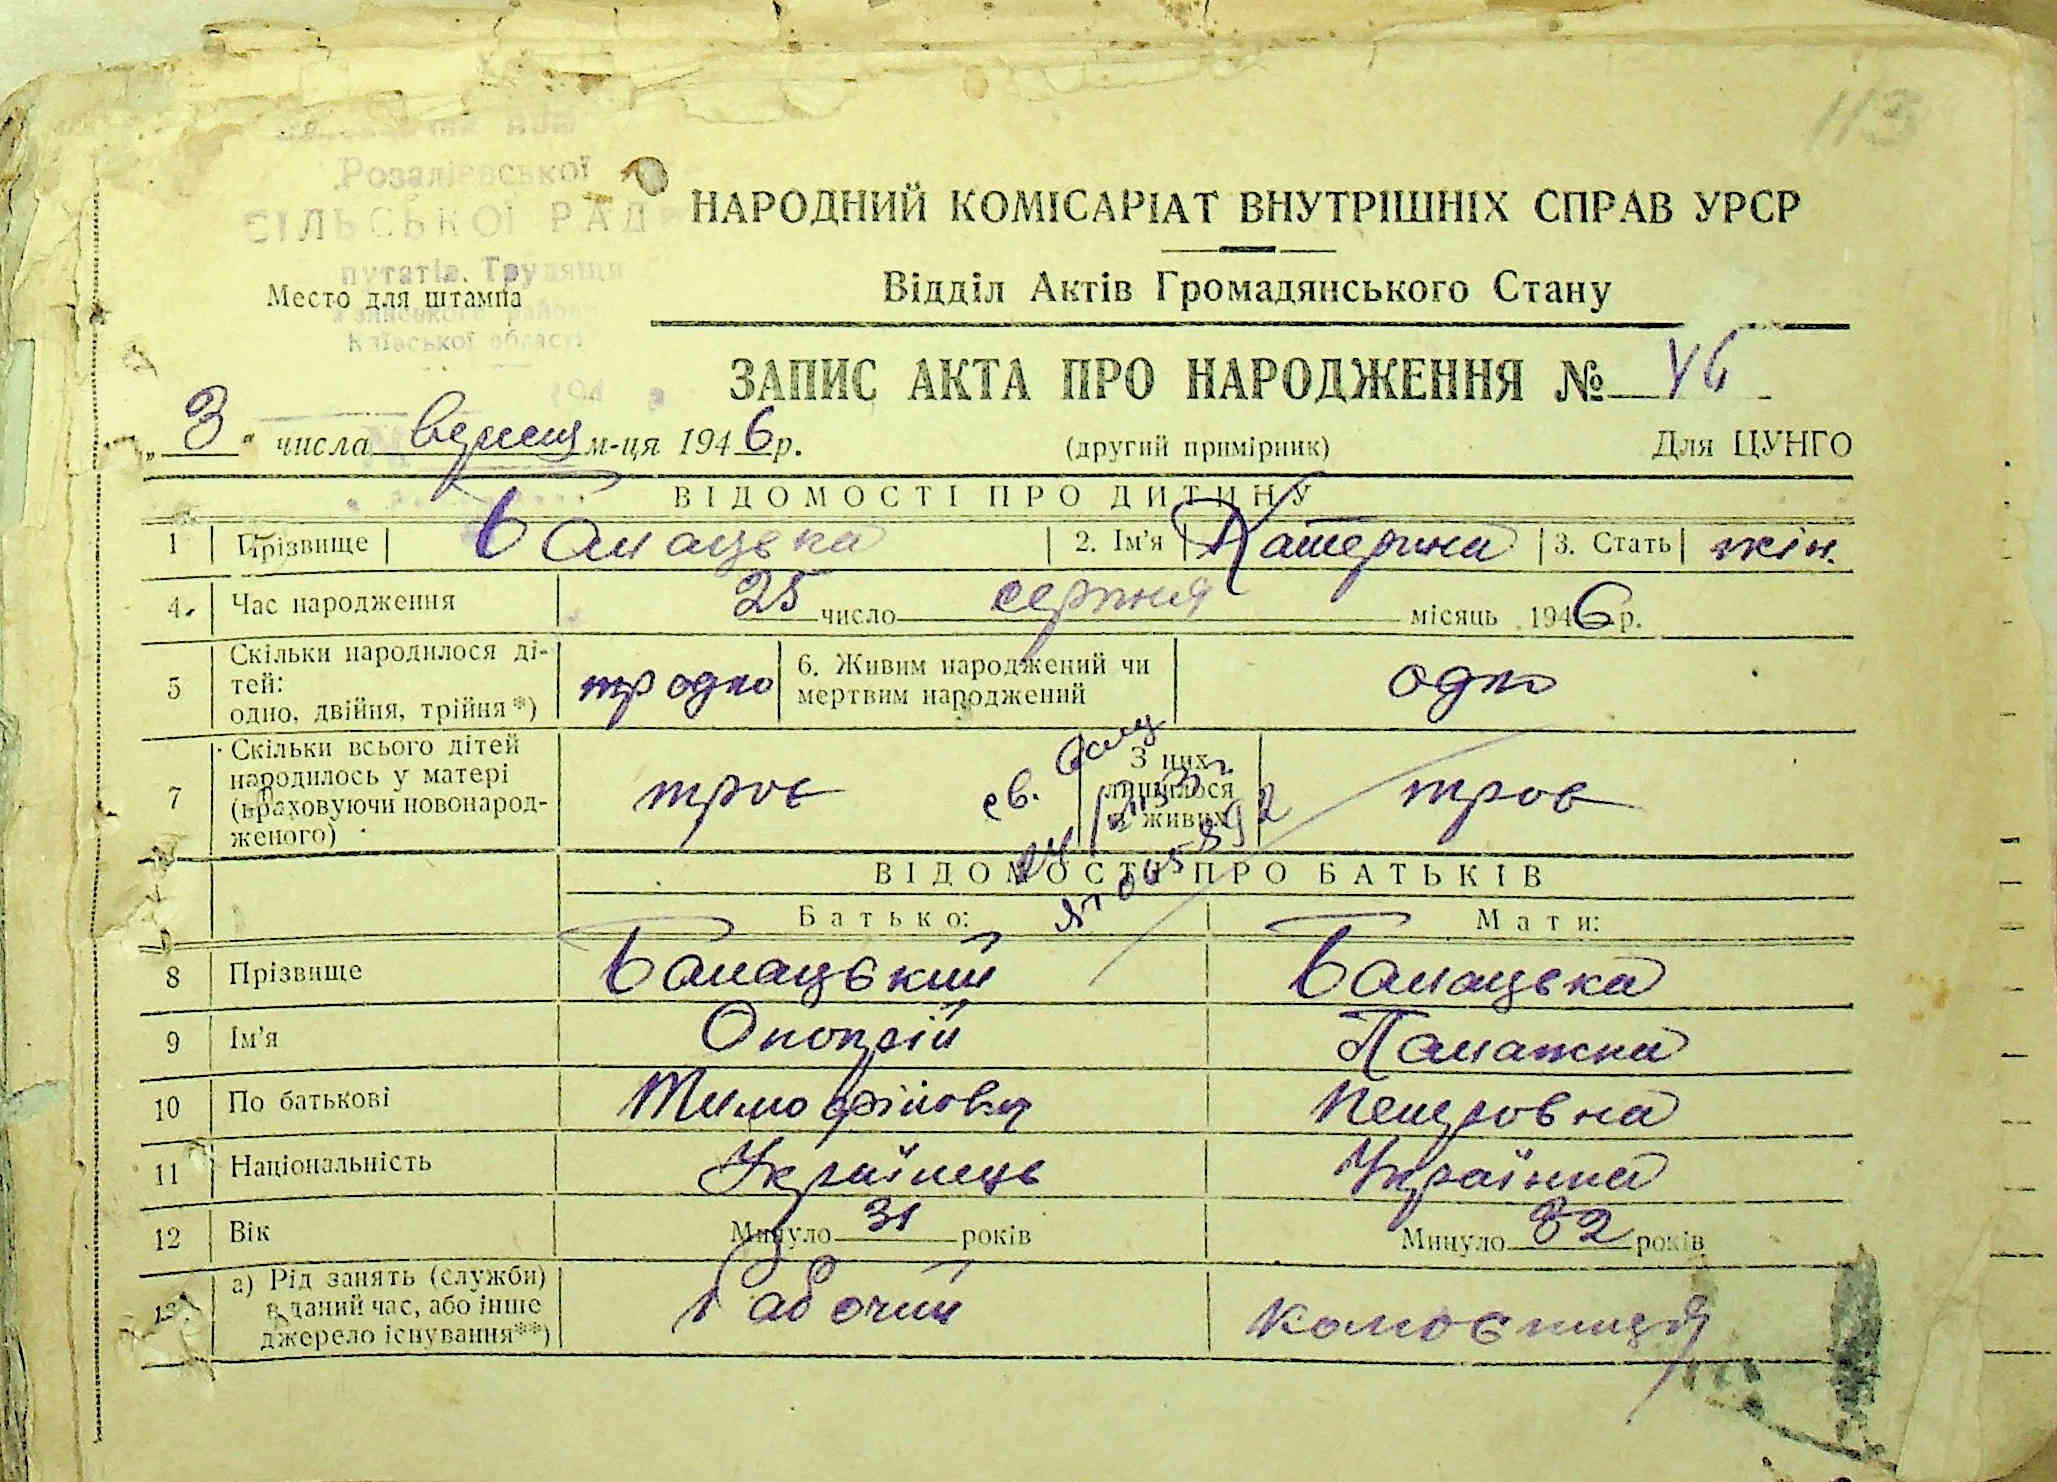 113
Розаліевської
СІЛЬСЬКОЇ РАД
путатів Трудящи
району
Київської області
194
Место для штампа
НАРОДНИЙ КОМІСАРІАТ ВНУТРІШНІХ СПРАВ УРСР
Відділ Актів Громадянського Стану
ЗАПИС АКТА ПРО НАРОДЖЕННЯ № 46
„3“ числа вересня м-ця 1946 р. (другий примірник) Для ЦУНГО
ВІДОМОСТІ ПРО ДИТИНУ
1 Прізвище Балацька 2. Ім'я Катерина 3. Стать жін.
4. Час народження 25 число серпня місяць 1946 р.
5 Скільки народилося дітей: одно, двійня, трійня*) тр одно 6. Живим народжений чи мертвим народжений одно
7 Скільки всього дітей народилось у матері (враховуючи новонародженого) троє З них лишилося в живих троє
св.
ВІДОМОСТІ ПРО БАТЬКІВ
Батько: Мати:
8 Прізвище Балацький Балацька
9 Ім'я Палажка
10 По батькові Тимофійович Петровна
11 Національність Українець Українка
12 Вік Минуло 31 років Минуло 32 років
13. а) Рід занять (служби) в даний час, або інше джерело існування**) Рабочий